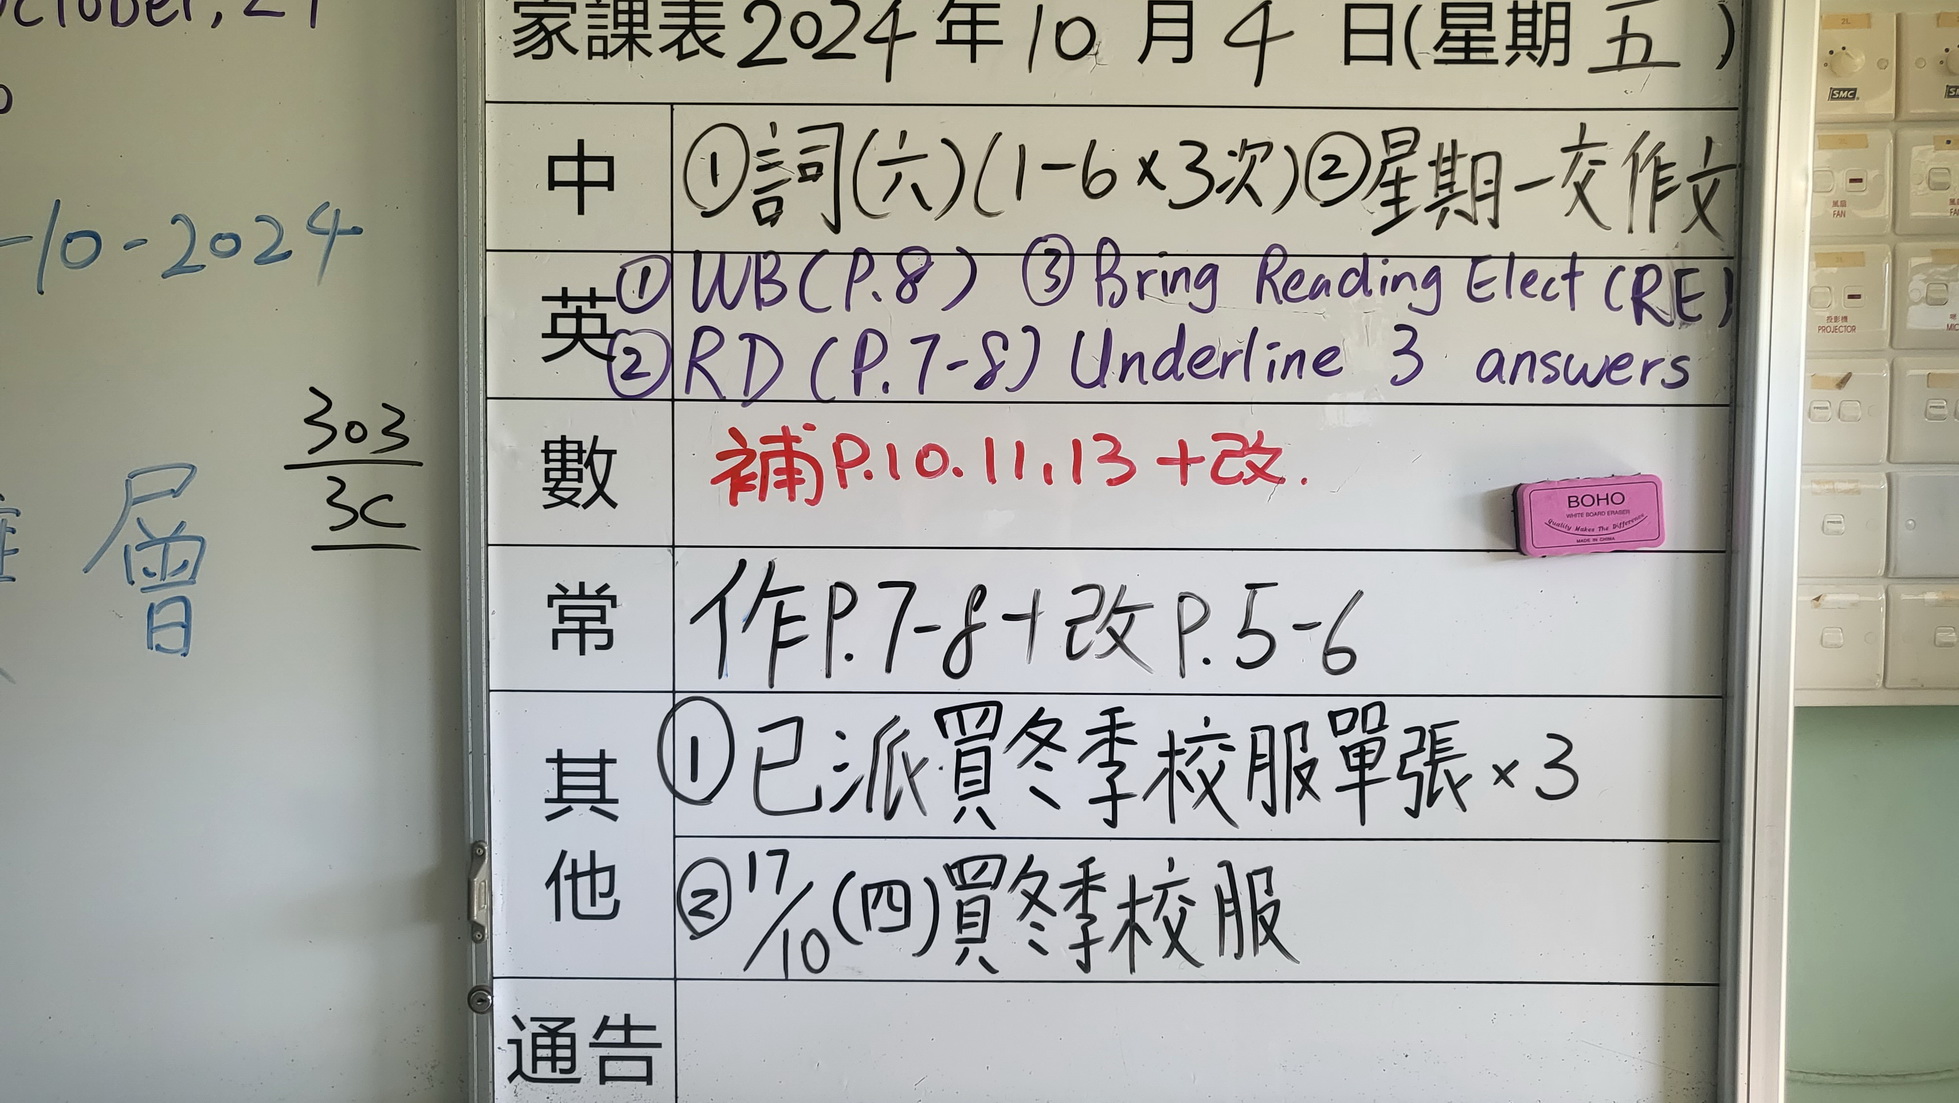 ctober, 24
-10-2024
303
3C
層
家課表2024年10月4日(星期五)
中 ①詞(六)(1-6×3次)②星期一交作文
英 ①WB(P.8) ③Bring Reading Elect (RE)
②RD(P.7-8) Underline 3 answers
數 補P.10.11,13+改.
常 作P.7-8+改P.5-6
其他 ①已派買冬季校服單張×3
②17/10(四)買冬季校服
通告
BOHO
WHITE BOARD ERASER
Quality Makes The Difference
MADE IN CHINA
2L
SMC
風扇
FAN
風扇
FA
2L
投影機
PROJECTOR
MIC